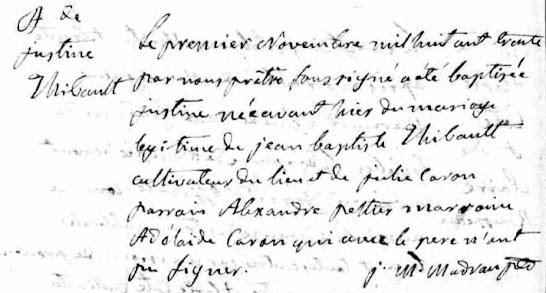 A de
justine
Thibault
Le premier Novembre mil huit cent trente
par nous prêtre soussigné a été baptisée
justine née avant hier du mariage
legitime de jean baptiste Thibault
cultivateur du lieu et de julie Caron
parrain Alexandre peltier marraine
Adélaide Caron qui avec le pere n'ont
pu signer. j. Md Madran ptre